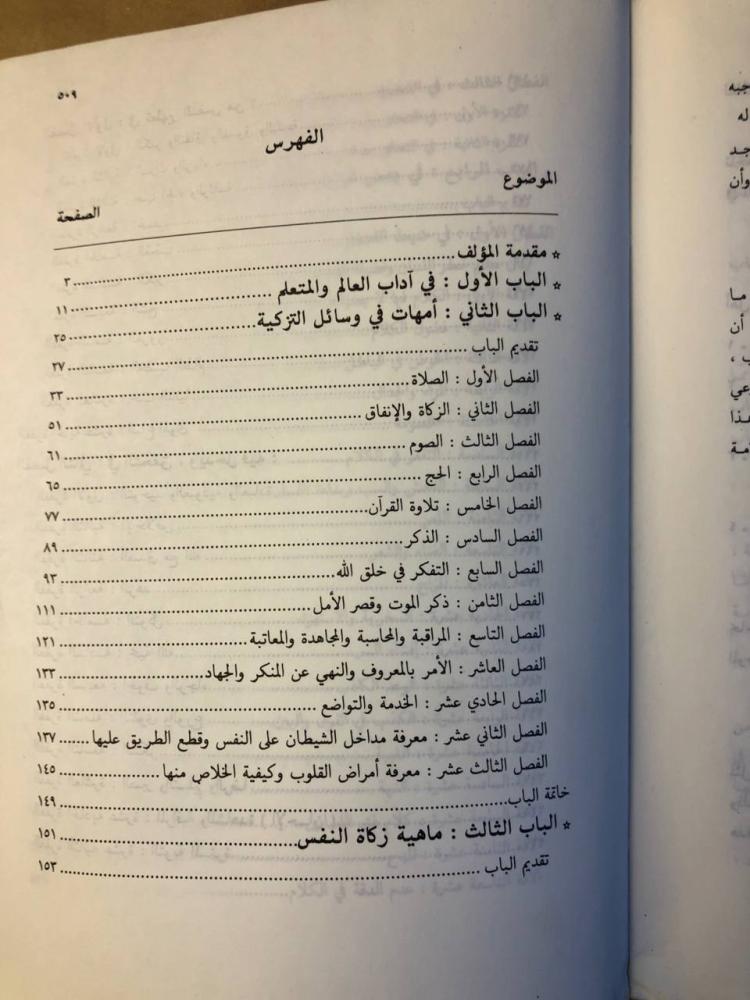 ٥٠٩
الفهرس
الموضوع
الصفحة
* مقدمة المؤلف ٣
* الباب الأول : في آداب العالم والمتعلم ١١
* الباب الثاني : أمهات في وسائل التزكية ٢٥
تقديم الباب ٢٧
الفصل الأول : الصلاة ٣٣
الفصل الثاني : الزكاة والإنفاق ٥١
الفصل الثالث : الصوم ٦١
الفصل الرابع : الحج ٦٥
الفصل الخامس : تلاوة القرآن ٧٧
الفصل السادس : الذكر ٨٩
الفصل السابع : التفكر في خلق الله ٩٣
الفصل الثامن : ذكر الموت وقصر الأمل ١١١
الفصل التاسع : المراقبة والمحاسبة والمجاهدة والمعاتبة ١٢١
الفصل العاشر : الأمر بالمعروف والنهي عن المنكر والجهاد ١٣٣
الفصل الحادي عشر : الخدمة والتواضع ١٣٥
الفصل الثاني عشر : معرفة مداخل الشيطان على النفس وقطع الطريق عليها ١٣٧
الفصل الثالث عشر : معرفة أمراض القلوب وكيفية الخلاص منها ١٤٥
خاتمة الباب ١٤٩
* الباب الثالث : ماهية زكاة النفس ١٥١
تقديم الباب ١٥٣
له
وأن
ما
أن